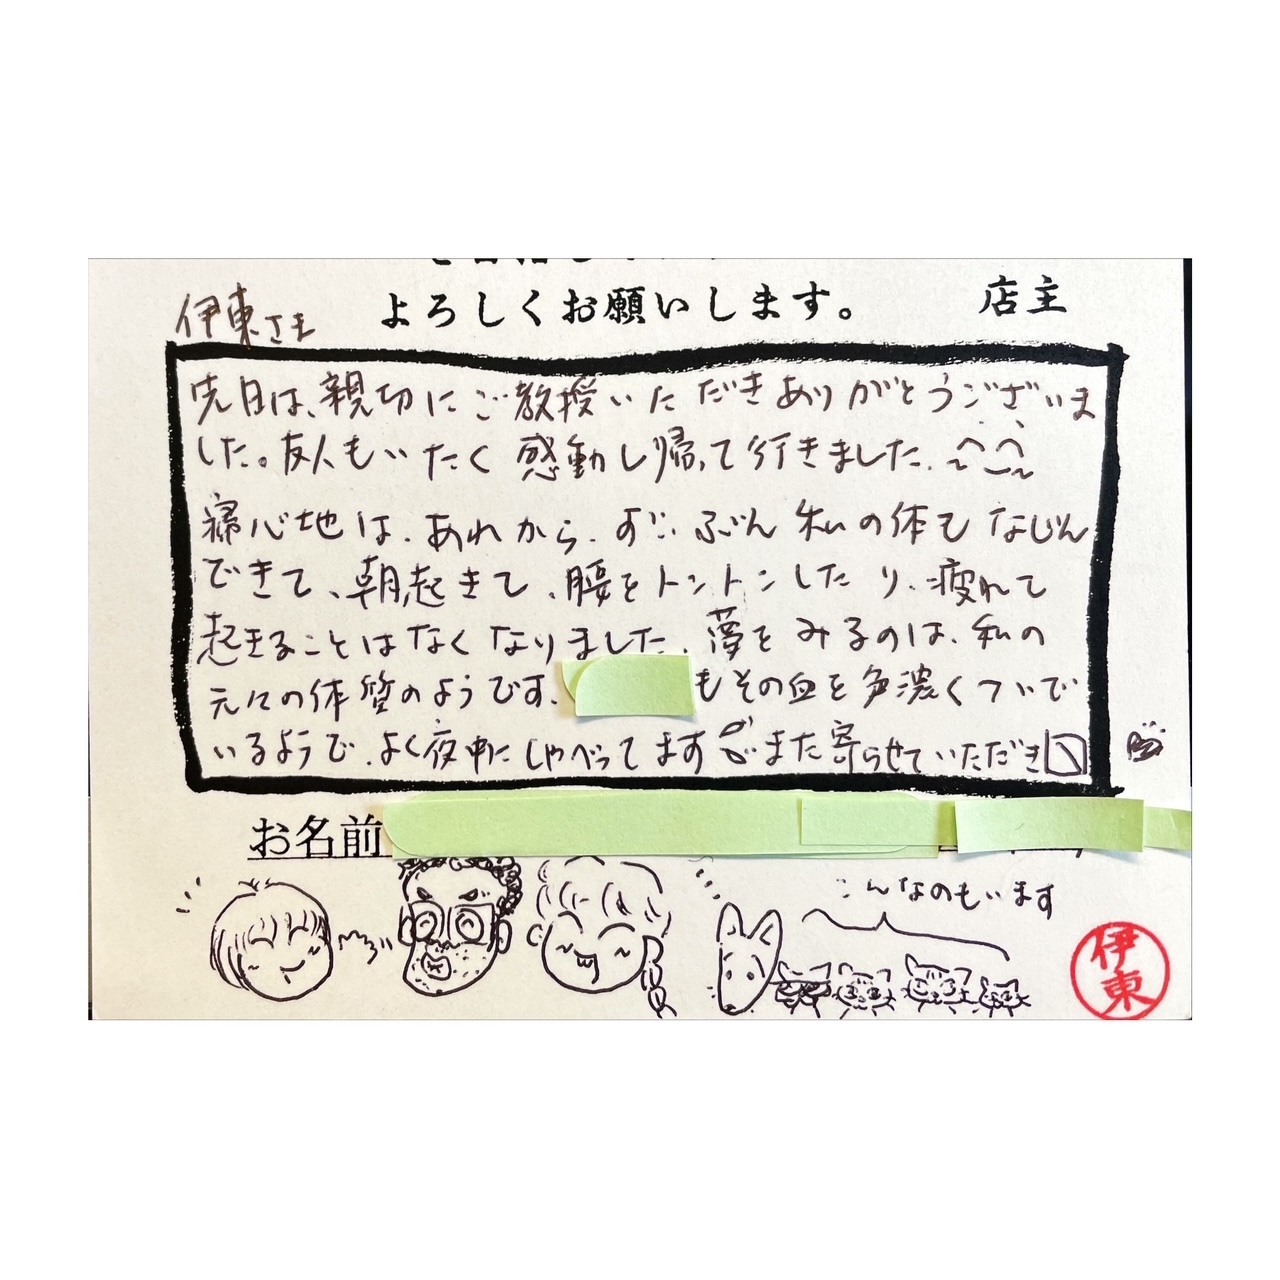 よろしくお願いします。
店主
伊東さま
先日は、親切にご教授いただきありがとうございま
した。友人もいたく感動し帰って行きました.
寝心地は、あれから、ずいぶん私の体もなじん
できて、朝起きて、腰をトントンしたり、疲れて
起きることはなくなりました。夢をみるのは、私の
元々の体質のようです.
もその血を色濃くついで
いるようで、よく夜中にしゃべってます
また寄らせていただき
お名前
こんなのもいます
伊東